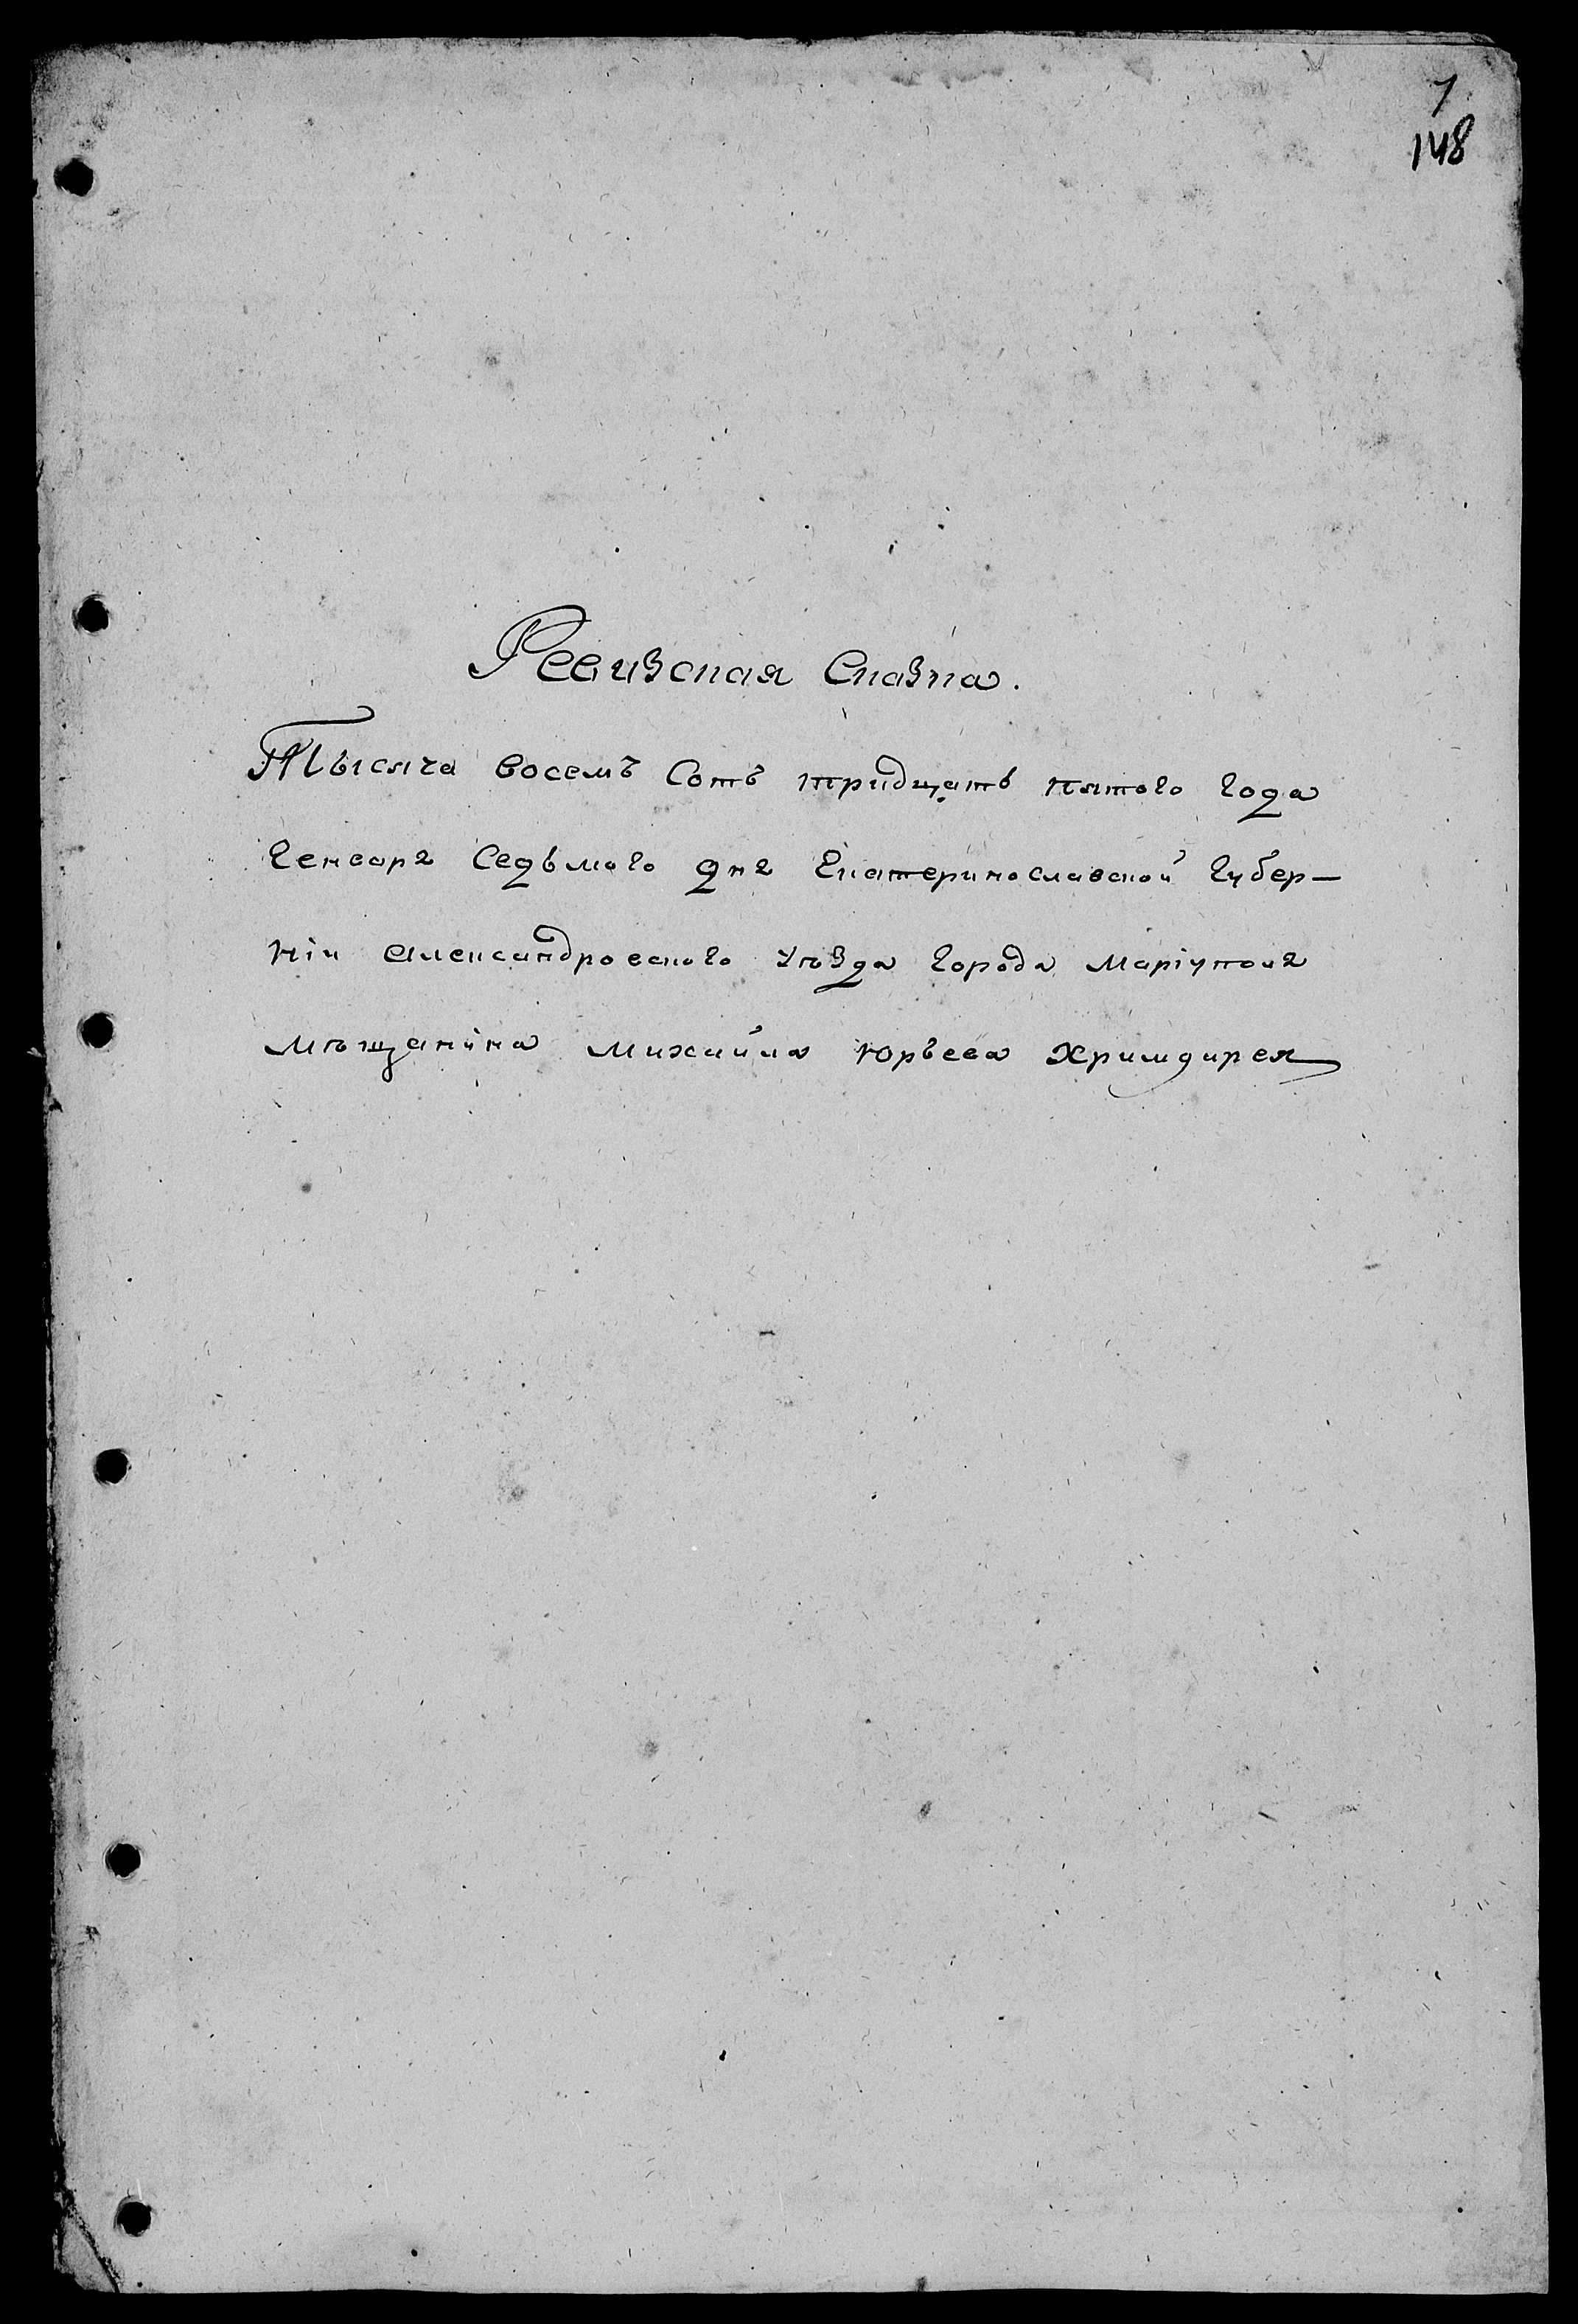 1
148
Ревизская Сказка.
Тысяча восемъ Сотъ тридцать пятого года
Генваря Седьмого дня Екатеринославской Губер-
ніи Александровского Уѣзда города Маріуполя
мѣщанина Михайла Юрьева